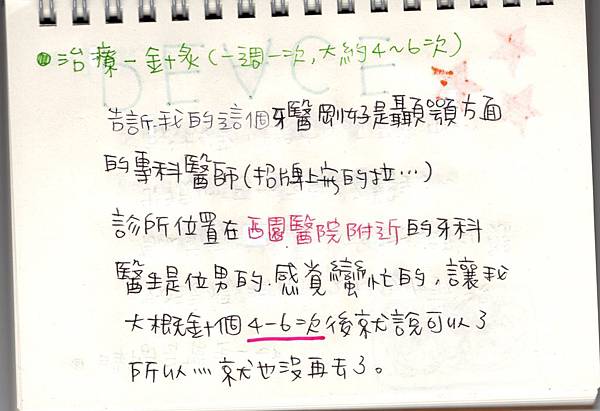 治療－針灸(一週一次,大約4~6次)
告訴我的這個牙醫剛好是顳顎方面
的專科醫師(招牌上寫的拉…)
診所位置在西園醫院附近的牙科
醫生是位男的.感覺蠻忙的,讓我
大概針個4-6次後就說可以了
所以…就也沒再去了。